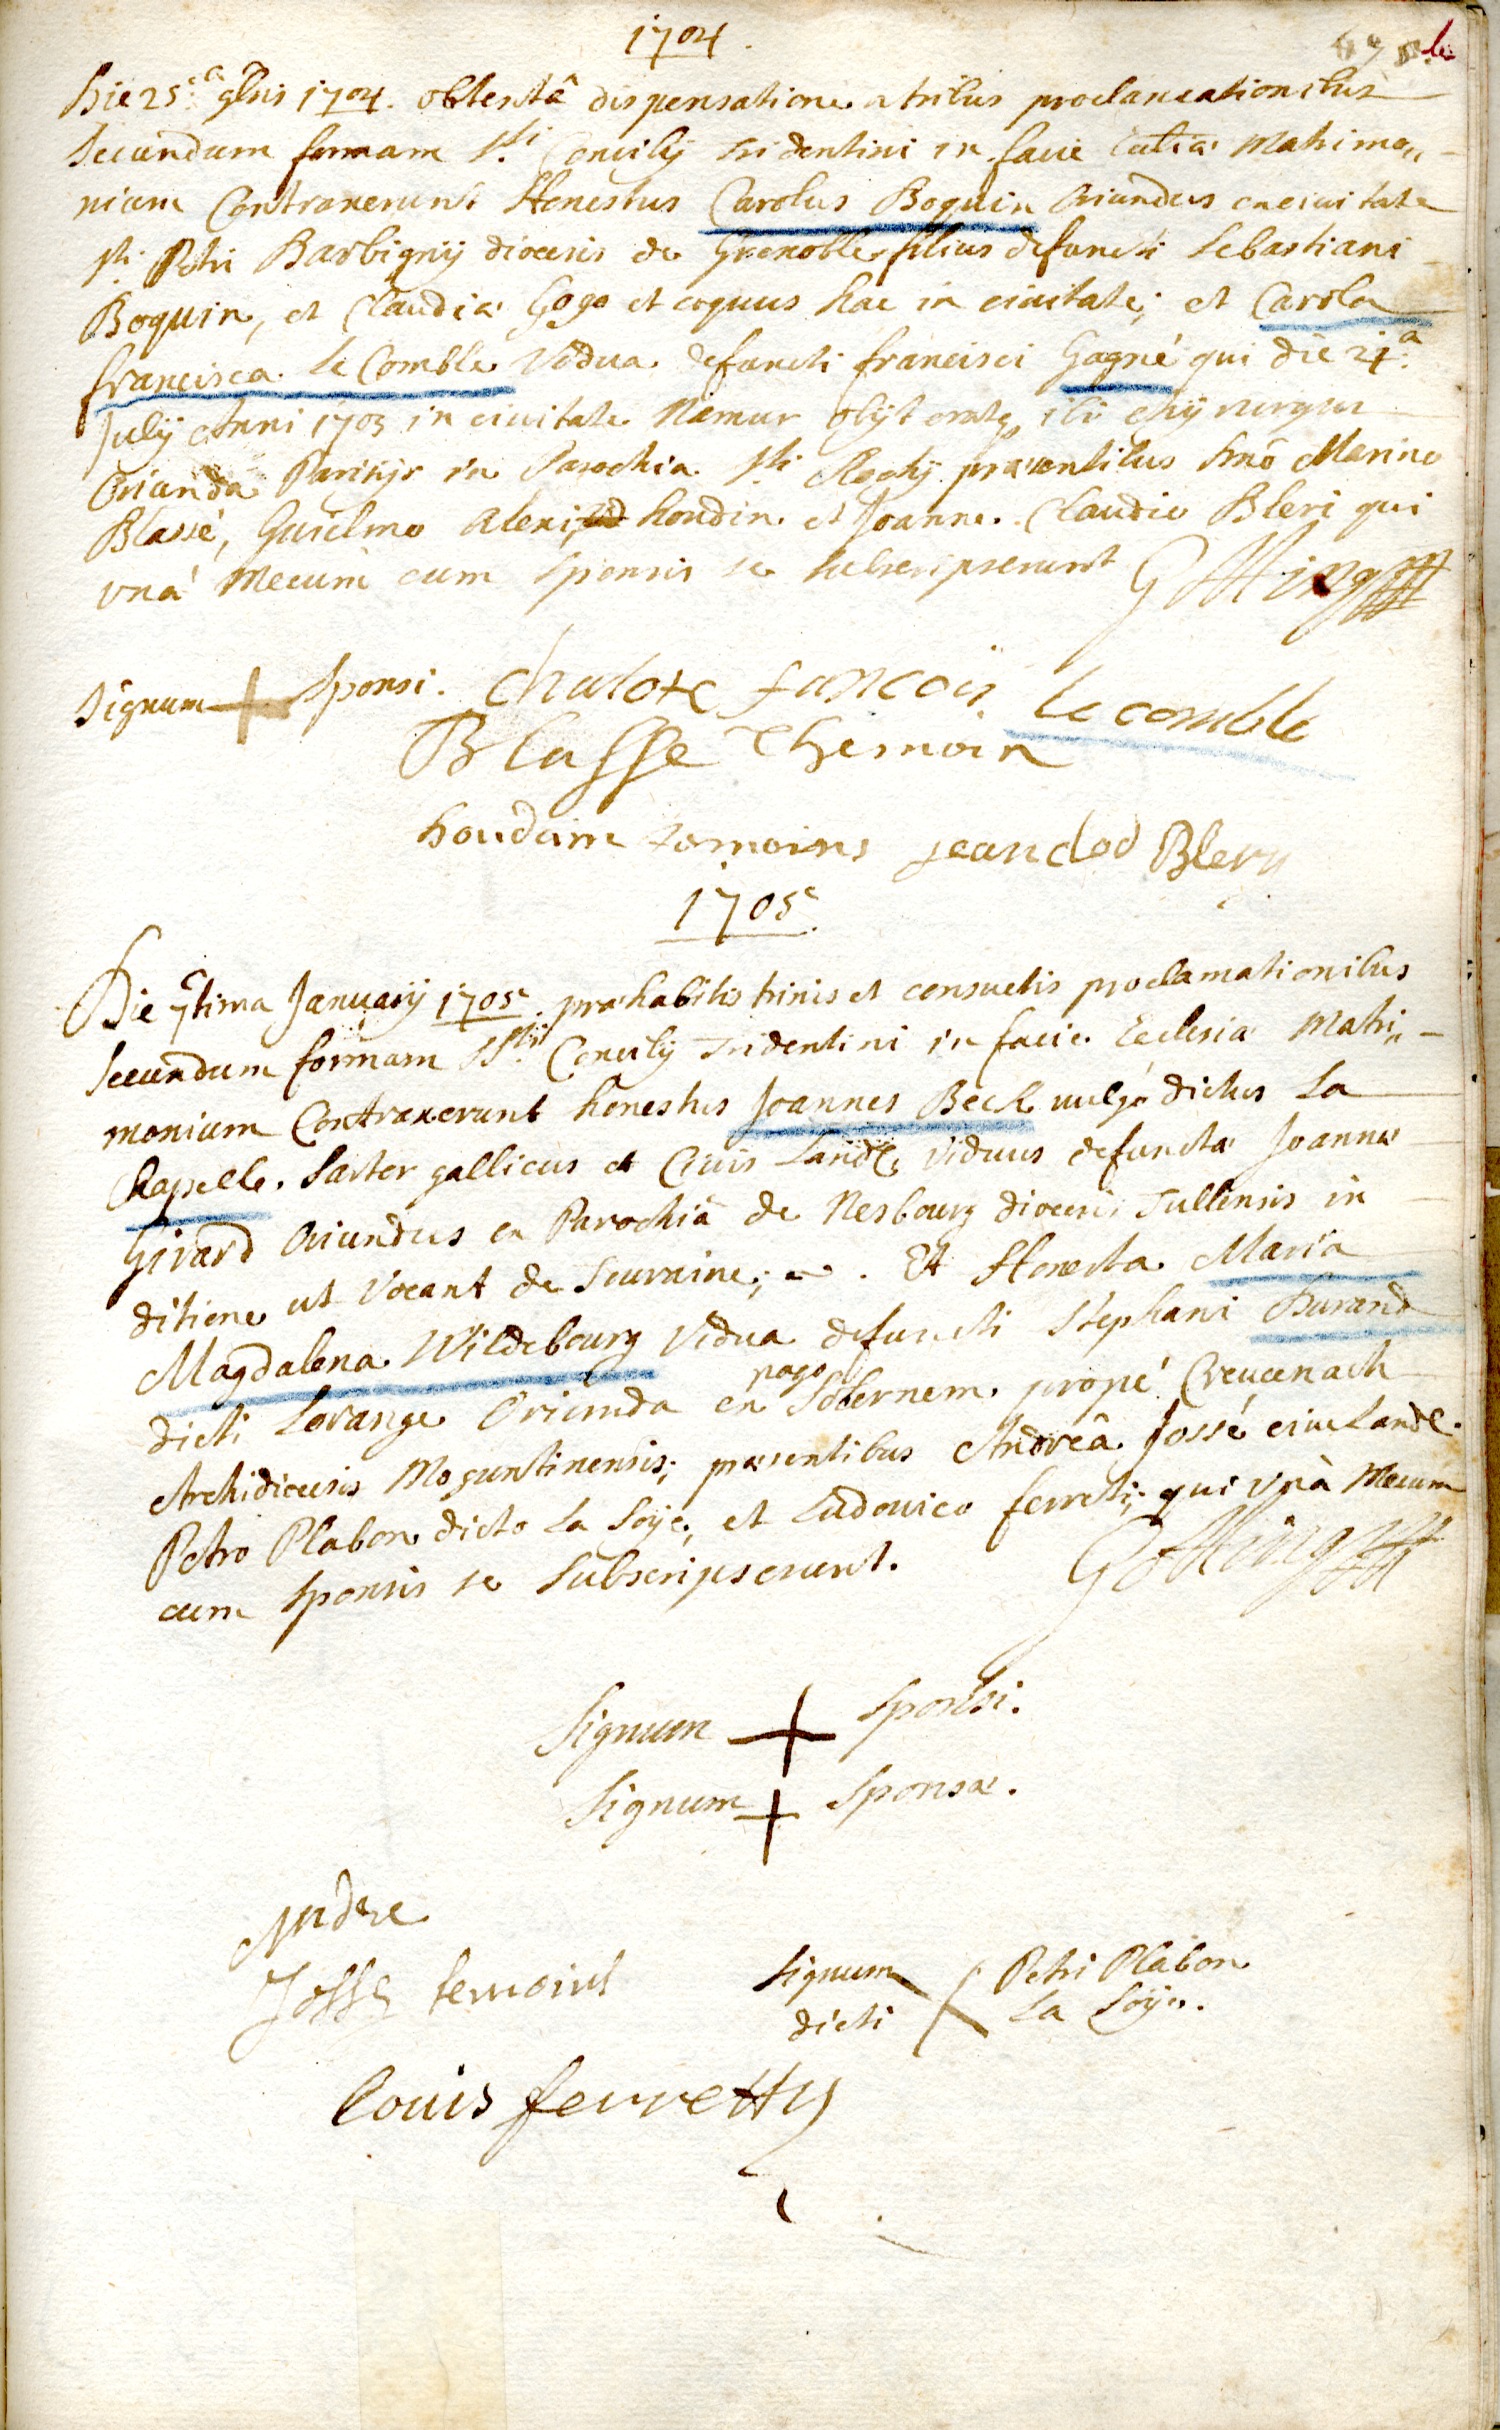 1704.
Die 25.a 9bris 1704. obtentâ dispensatione a tribus proclamationibus
Secundum formam Sti. Concilij Tridentini in facie Eccliæ Matrimo„
nium Contraxerunt Honestus Carolus Boquin Oriundus ex civitate
sti. Petri Barbigny diocesis de Grenoble, filius defuncti Sebastiani
Boquin, et Claudiæ Goge et coquus hac in civitate; et Carola
francisca le Comble Vidua defuncti francisci Gagné qui die 24.a
July Anni 1703 in civitate Namur obijt ibi chyrurgus
Oriunda Parisijs in Parochia Sti præsentibus Marino
Blassé, Guielmo houdin et Joanne Claudio Bleri qui
unà Mecum cum Sponsis se subscripserunt
Signum + Sponsi. chalote fancois le comble
Blasse Themoin
houdain temoins Blery
1705.
Die 7tima January 1705. præhabitis trinis et consuetis proclamationibus
Secundum formam SSti Concilij Tridentini in facie Ecclesiæ Matri„
monium Contraxerunt honestus Joannes Beck vulgó dictus La
Chapelle. Sartor gallicus et Civis Land. Viduus defunctæ Joannæ
Girard Oriundus ex Parochiâ de Nesbourg diocesis Tullensis in
ditione ut Vocant de Touraine; Et Honesta Maria
Magdalena Wildebourg Vidua defuncti Stephani Durand
pago
dicti Lorange Oriunda ex Sobernem. propé Creucenach
Archidiocesis Moguntinensis; præsentibus Andreâ Jossé cive Land.
Petro Plabon dicto La Soÿe, et Ludovico ferreti; qui Vnà Mecum
cum Sponsis se Subscripserunt.
Signum + Sponsi.
Signum + Sponsæ.
Andre
Josse temoins
Signum Petri Plabon
dicti La Soÿe.
Louis ferretty